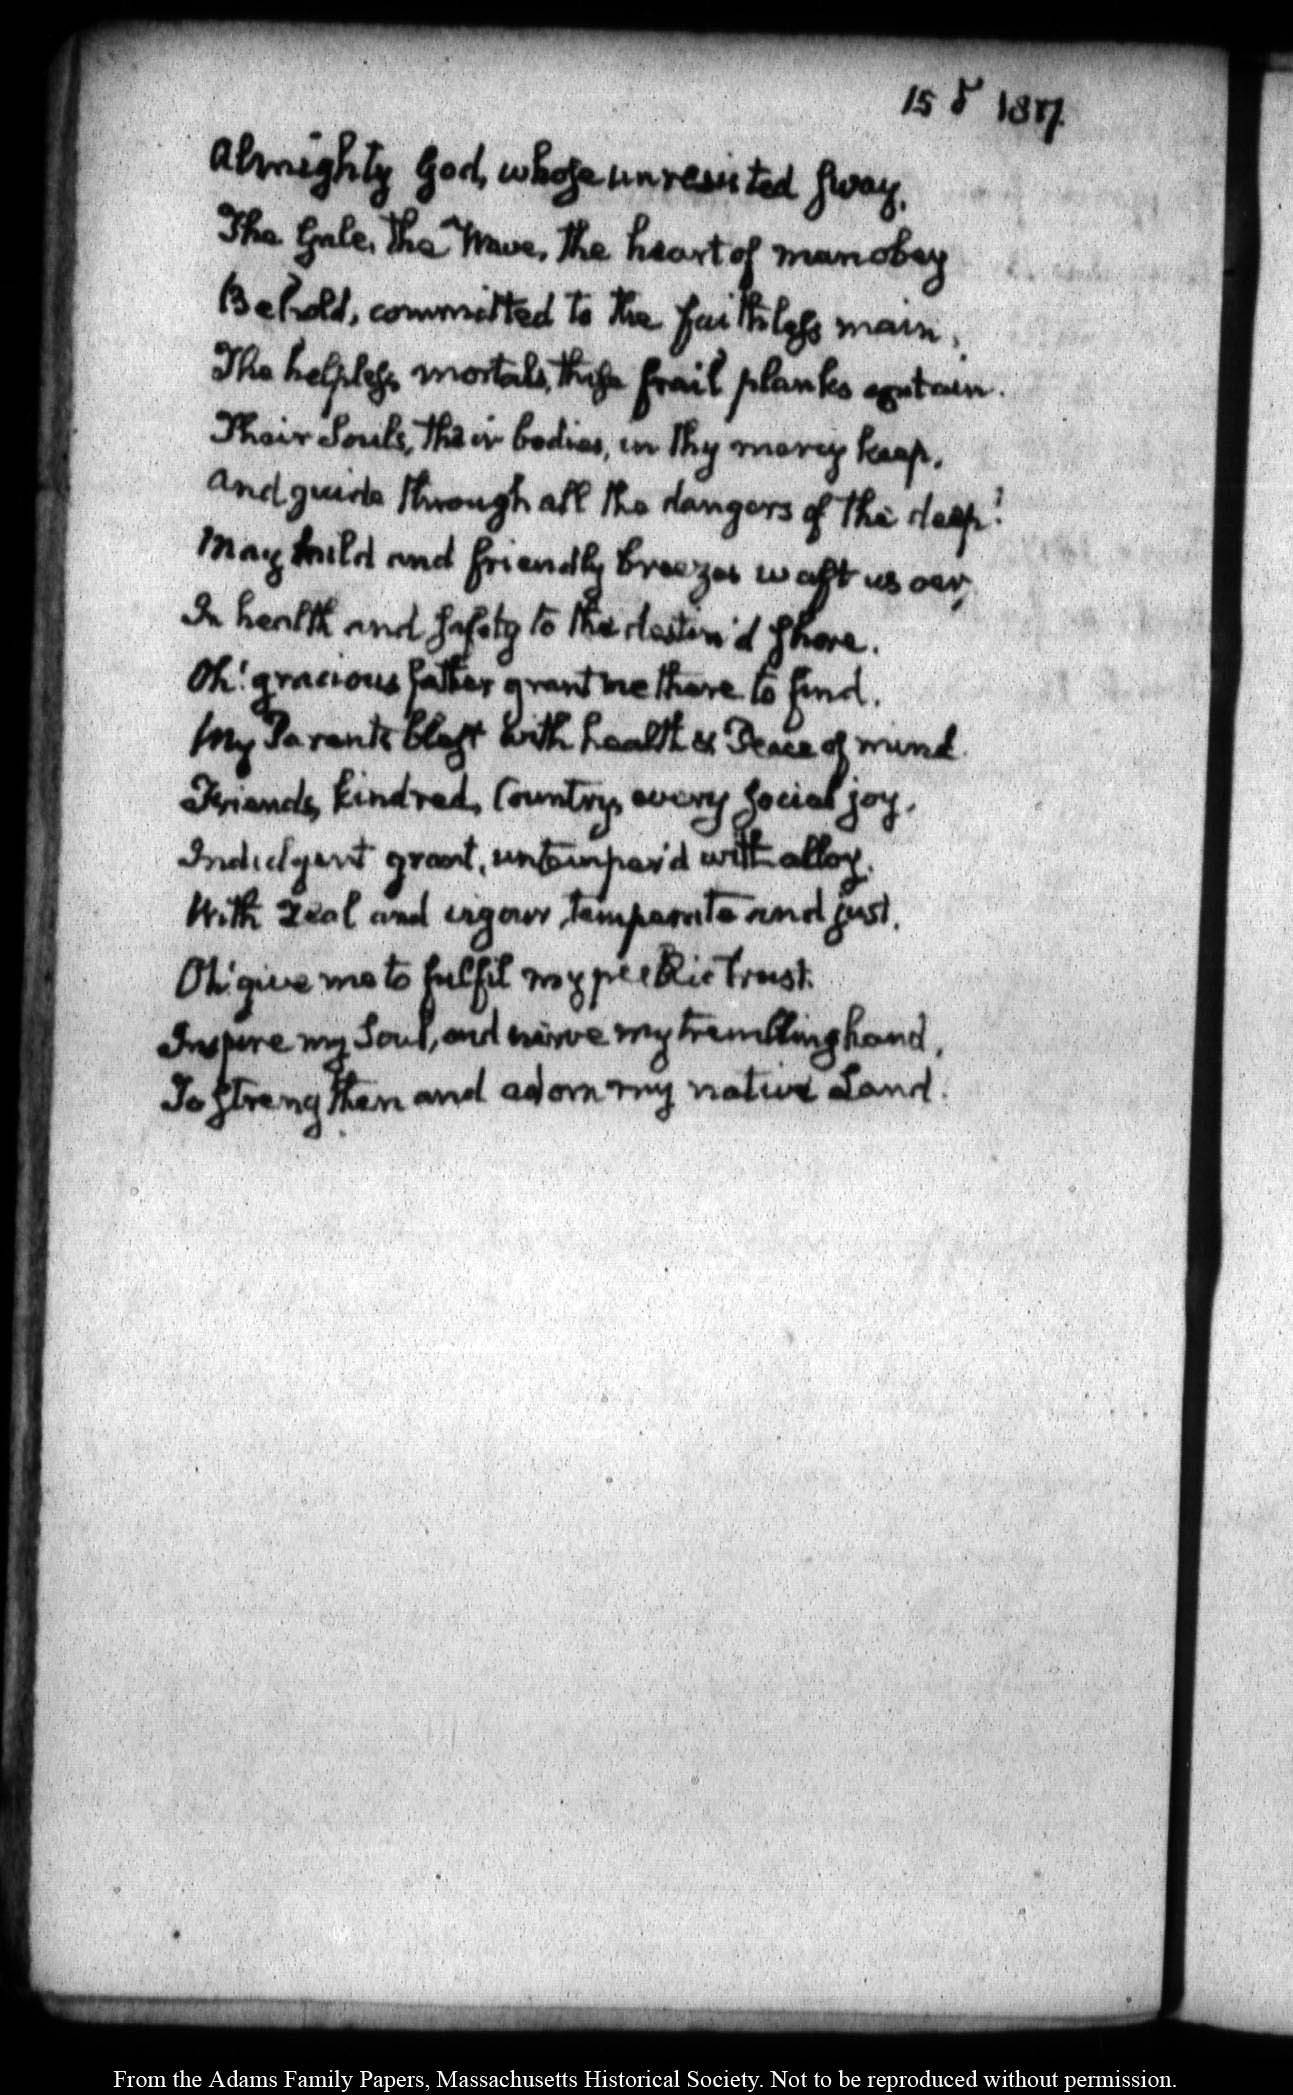 15 1817.
Almighty God, whose unresisted sway,
The Gale, the Wave, the heart of man obey
Behold, committed to the faithless main,
The helpless mortals, these frail planks contain.
Their Souls, their bodies, in thy mercy keep,
And guide through all the dangers of the deep!
May mild and friendly breezes waft us oer,
In health and safety to the destin'd shore.
Oh! gracious father grant me there to find,
My Parents blest with health & Peace of mind
Friends, kindred, Country, every social joy,
Indulgent grant, untemper'd with alloy.
With zeal and vigour, temperate and just,
Oh! give me to fulfil my public trust.
Inspire my Soul, and nerve my trembling hand,
To strengthen and adorn my native Land.
From the Adams Family Papers, Massachusetts Historical Society. Not to be reproduced without permission.